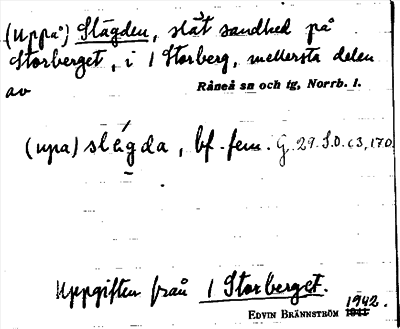 (Uppå) Slägden, slät sandhed på
Storberget, i 1 Storberg, mellersta delen
av Råneå sn och tg, Norrb. l.
(upa) slägda, bf. fem. G. 29. S.O. c3, 170
Uppgiften från 1 Storberget.
1942.
EDVIN BRÄNNSTRÖM 1941